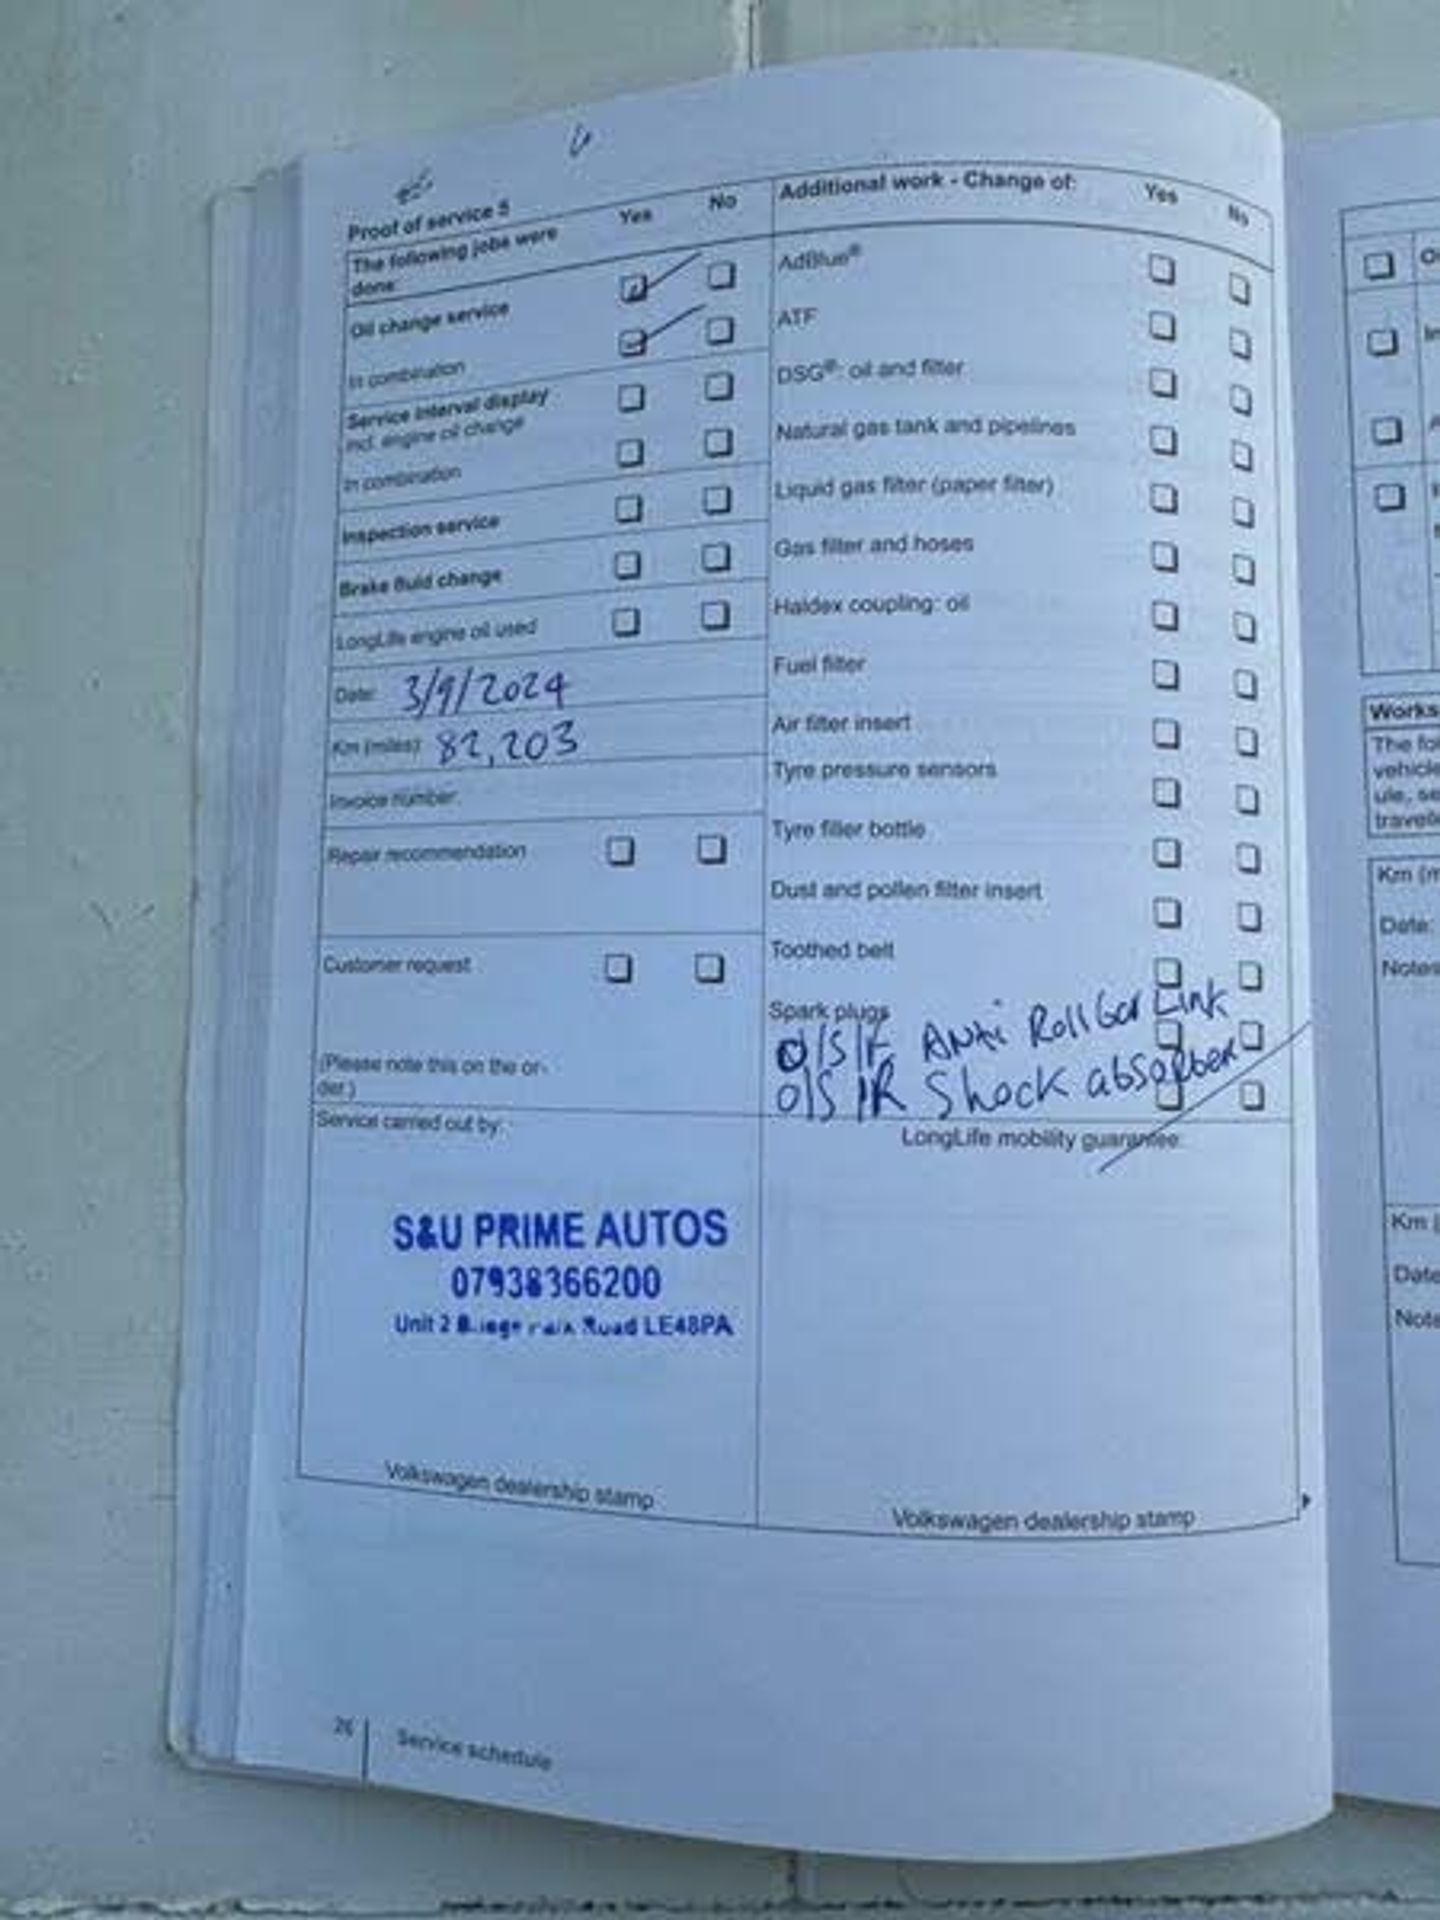 Proof of service 5
Yes
No
The following jobs were
done:
Oil change service
In combination
Service interval display
incl. engine oil change
In combination
Inspection service
Brake fluid change
LongLife engine oil used
Date: 3/9/2024
Km (miles): 82,203
Invoice number:
Repair recommendation
Customer request
(Please note this on the or-
der.)
Service carried out by:
S&U PRIME AUTOS
07938366200
Unit 2 Road LE48PA
Volkswagen dealership stamp
Additional work - Change of:
Yes
No
AdBlue®
ATF
DSG®: oil and filter
Natural gas tank and pipelines
Liquid gas filter (paper filter)
Gas filter and hoses
Haldex coupling: oil
Fuel filter
Air filter insert
Tyre pressure sensors
Tyre filler bottle
Dust and pollen filter insert
Toothed belt
Spark plugs
O/S/F Anti Roll bar Link
O/S/R Shock absorber
LongLife mobility guarantee:
Volkswagen dealership stamp
26
Service schedule
Works
The fol
vehicle
ule, se
travell
Km (m
Date:
Notes
Km (
Date
Note